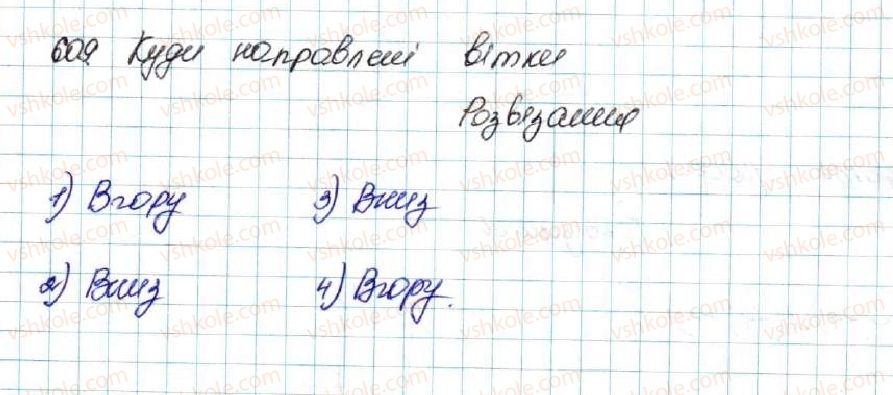 609. Куди направлені вітки
Розв'язання
1) Вгору 3) Вниз
2) Вниз 4) Вгору.